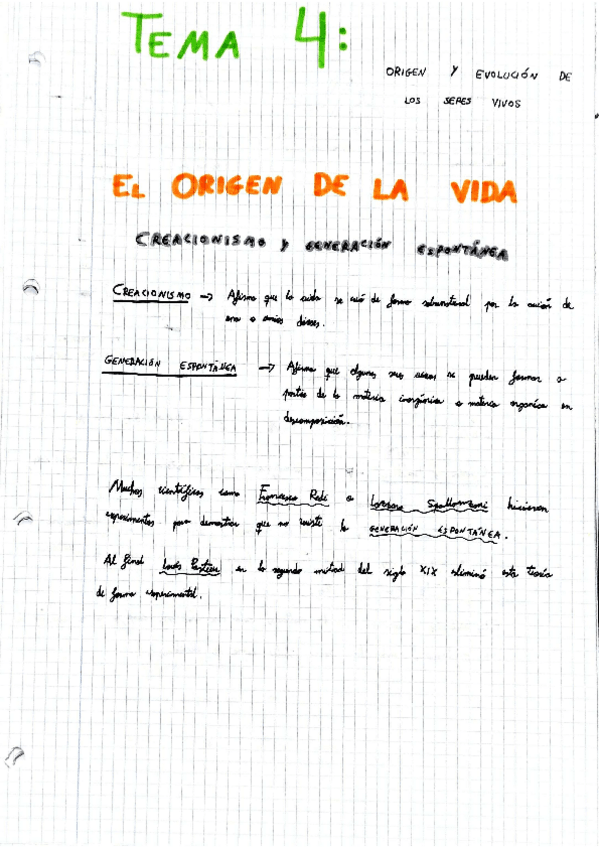 TEMA 4:
ORIGEN Y EVOLUCIÓN DE
LOS SERES VIVOS
EL ORIGEN DE LA VIDA
CREACIONISMO Y GENERACIÓN ESPONTÁNEA
CREACIONISMO → Afirma que la vida se creó de forma sobrenatural por la acción de
uno o varios dioses.
GENERACIÓN ESPONTÁNEA → Afirma que algunos seres vivos se pueden formar a
partir de la materia inorgánica o materia orgánica en
descomposición.
Muchos científicos como Francesco Redi o Lazzaro Spallanzani hicieron
experimentos para demostrar que no existe la GENERACIÓN ESPONTÁNEA.
Al final Louis Pasteur en la segunda mitad del siglo XIX eliminó esta teoría
de forma experimental.